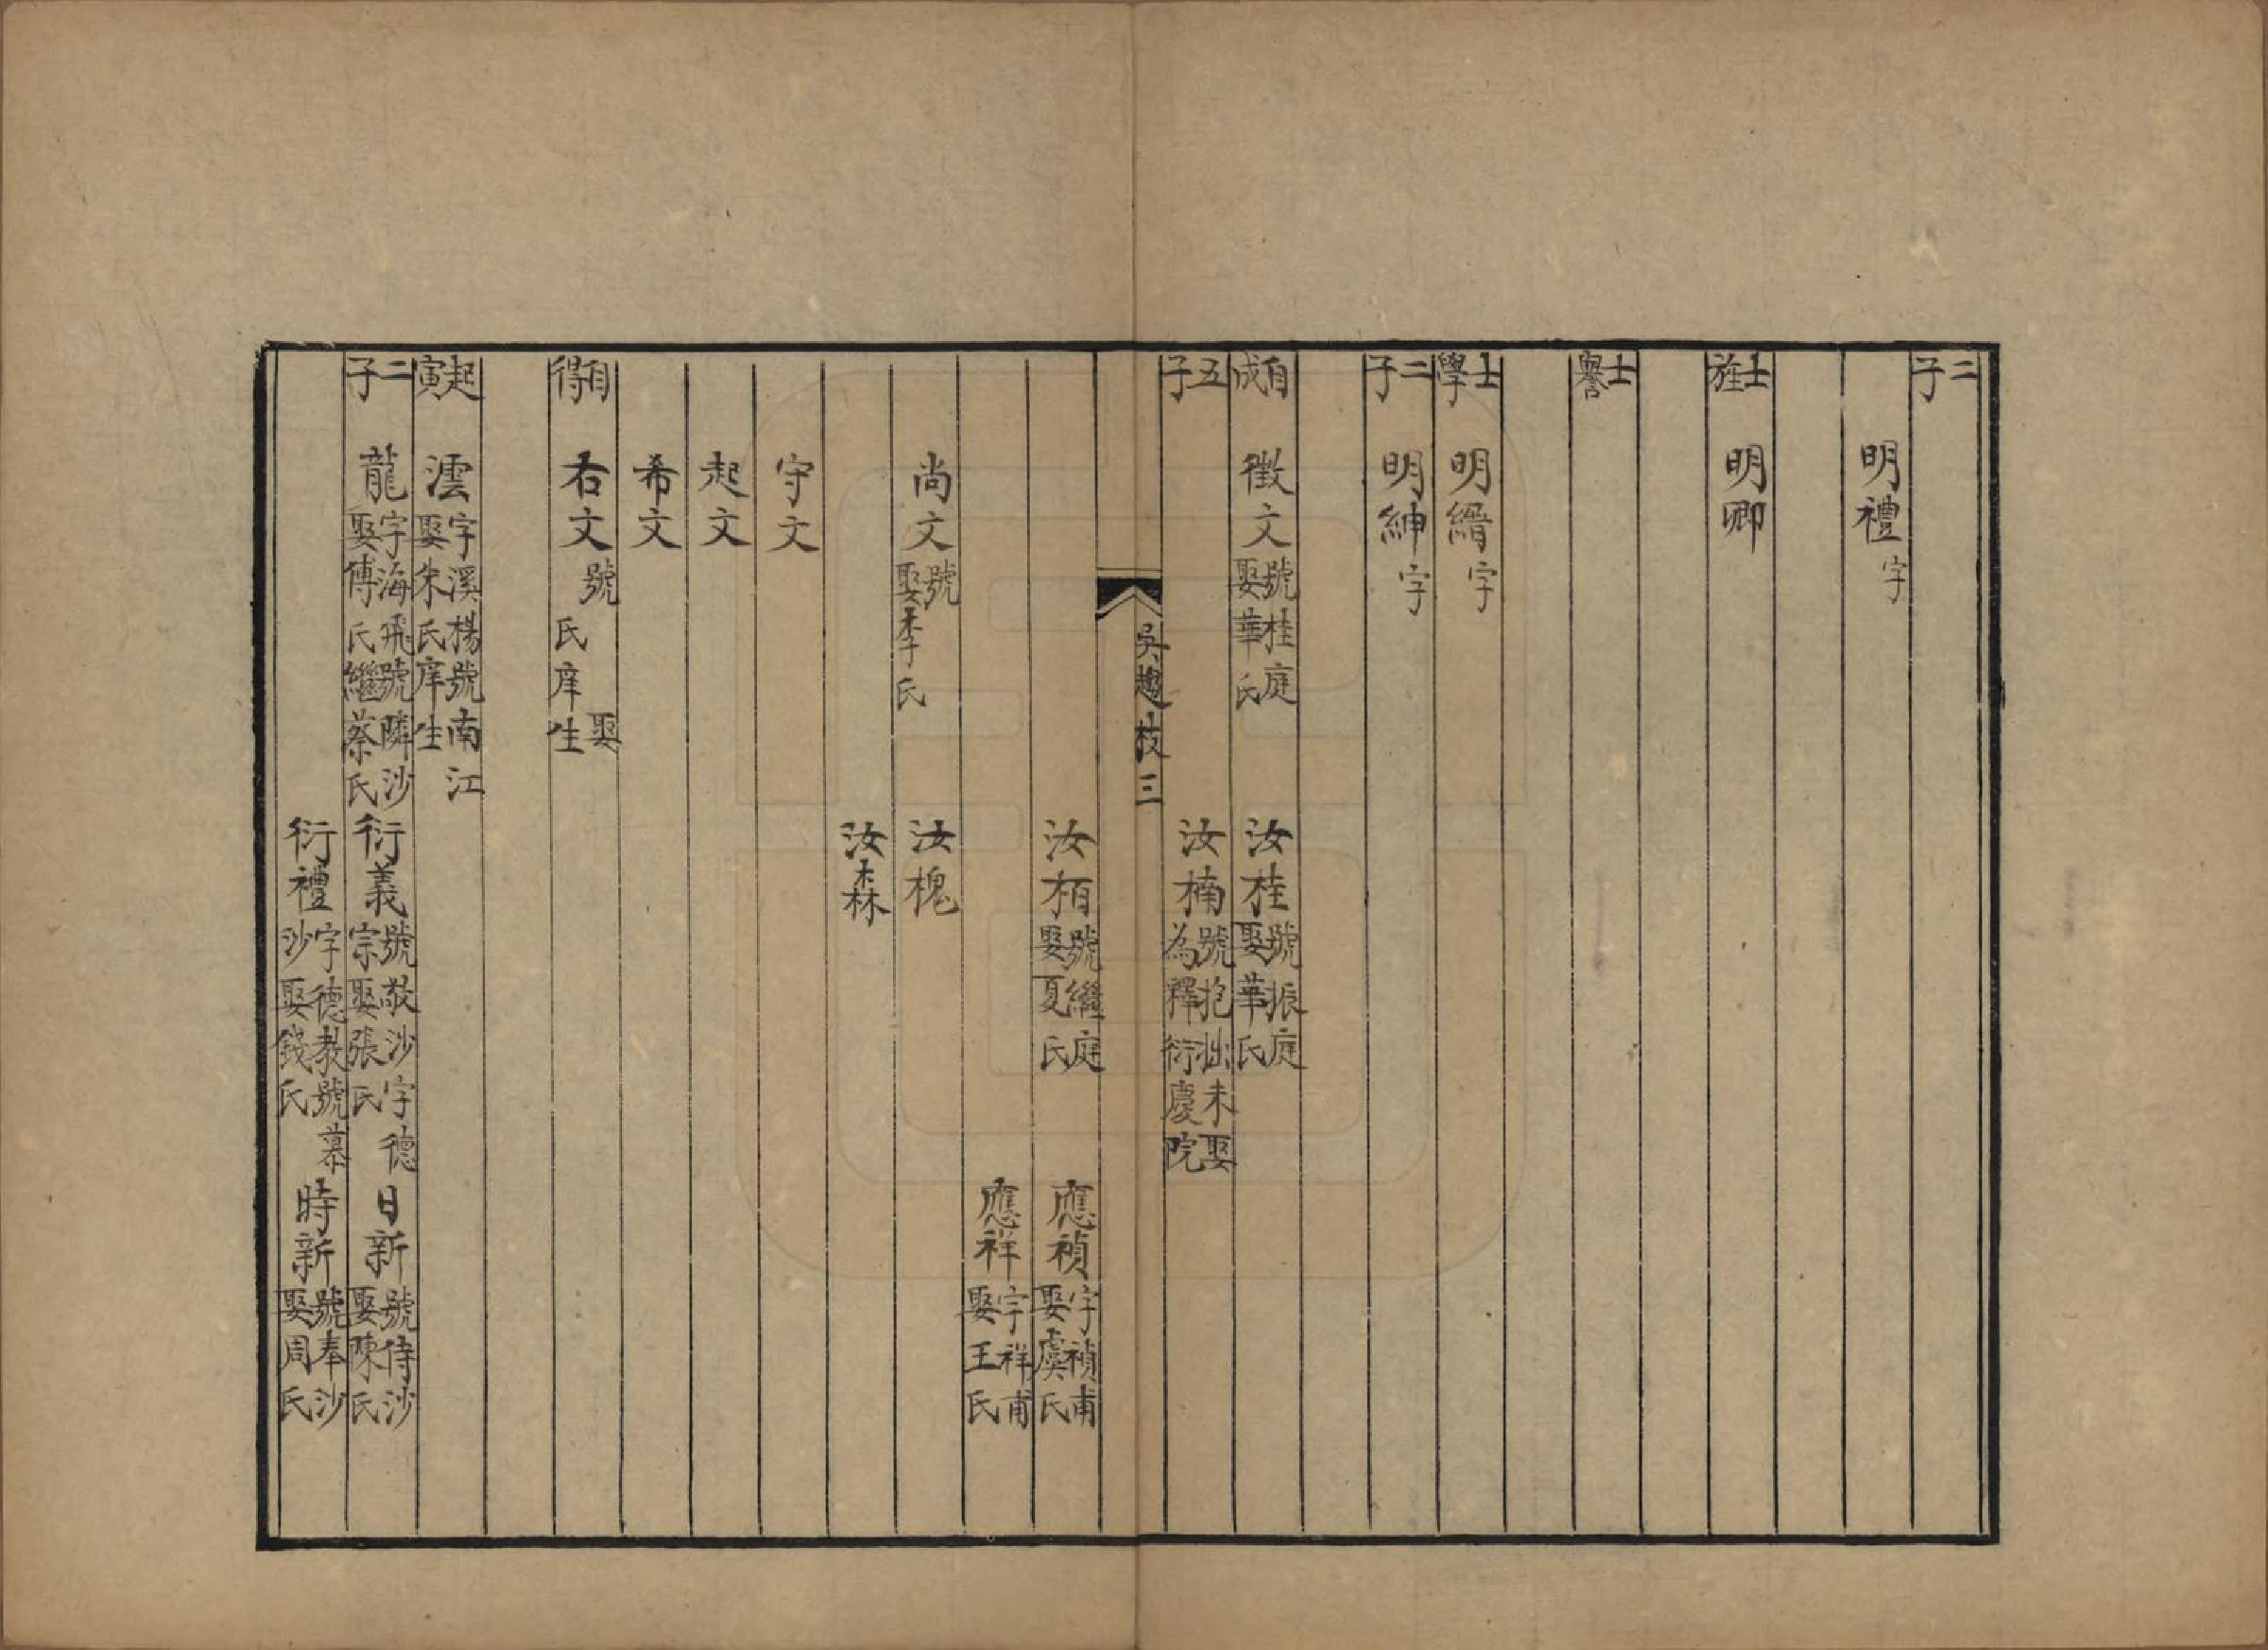 二子
明禮字
士旌　明卿
士譽
士學　明縉字
二子　明紳字
自成　徵文號桂庭娶華氏　汝桂號振庭娶華氏
五子　汝楠號抱拙未娶為釋衍慶院
吳趨枝三
汝栢號繼庭娶夏氏　應禎字禎甫娶虞氏
應祥字祥甫娶王氏
尚文號　娶李氏　汝槐
汝森
守文
起文
希文
自得　右文號　娶　氏庠生
起寅　澐字溪楊號南江娶朱氏庠生
二子　龍字海飛號隣沙娶傅氏繼蔡氏　衍義號敬沙字德宗娶張氏　日新號侍沙娶陳氏
衍禮字德教號慕沙娶錢氏　時新號奉沙娶周氏